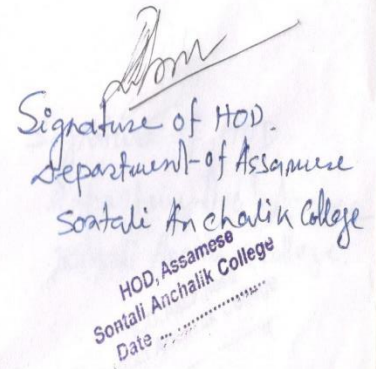 Signature of HOD.
Department-of Assamese
Sontali Anchalik College
HOD, Assamese
Sontali Anchalik College
Date ... ..................